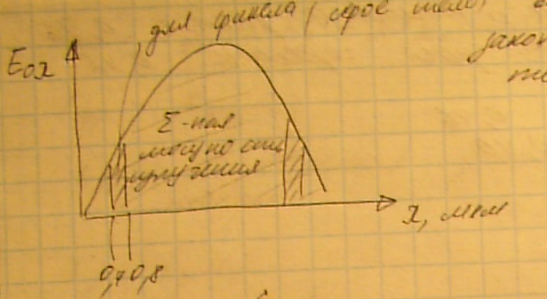 для финела (серое тело)
закон
E₀λ
Σ-ная
мощность
излучения
λ, мкм
0,4 0,8